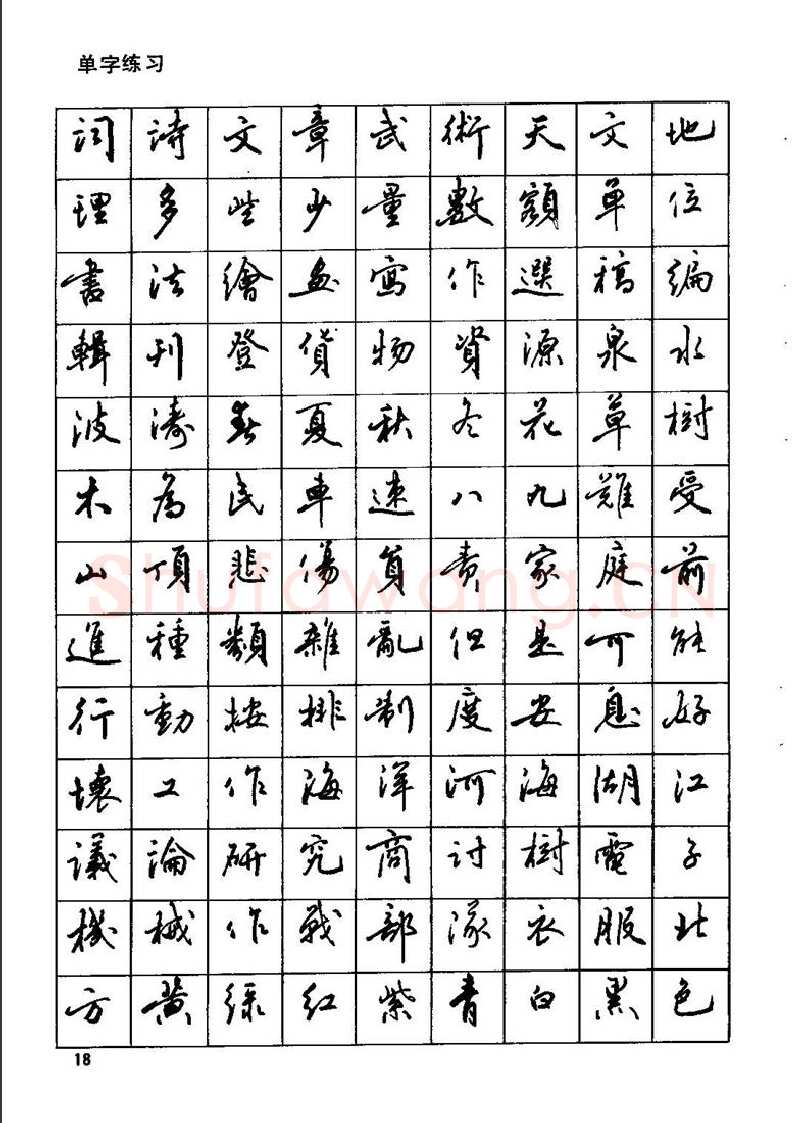 单字练习
词 詩 文 章 武 術 天 文 地
理 多 些 少 量 數 額 單 位
書 法 繪 畫 寫 作 選 稿 編
輯 刊 登 貨 物 資 源 泉 水
波 濤 春 夏 秋 冬 花 草 樹
木 為 民 車 速 八 九 難 受
山 頂 悲 傷 負 責 家 庭 前
進 種 類 雜 亂 但 是 可 能
行 動 按 排 制 度 安 息 好
壞 工 作 海 洋 河 海 湖 江
議 論 研 究 商 討 樹 電 子
機 械 作 戰 部 隊 衣 服 北
方 黃 綠 紅 紫 青 白 黑 色
18
shufawang.CN